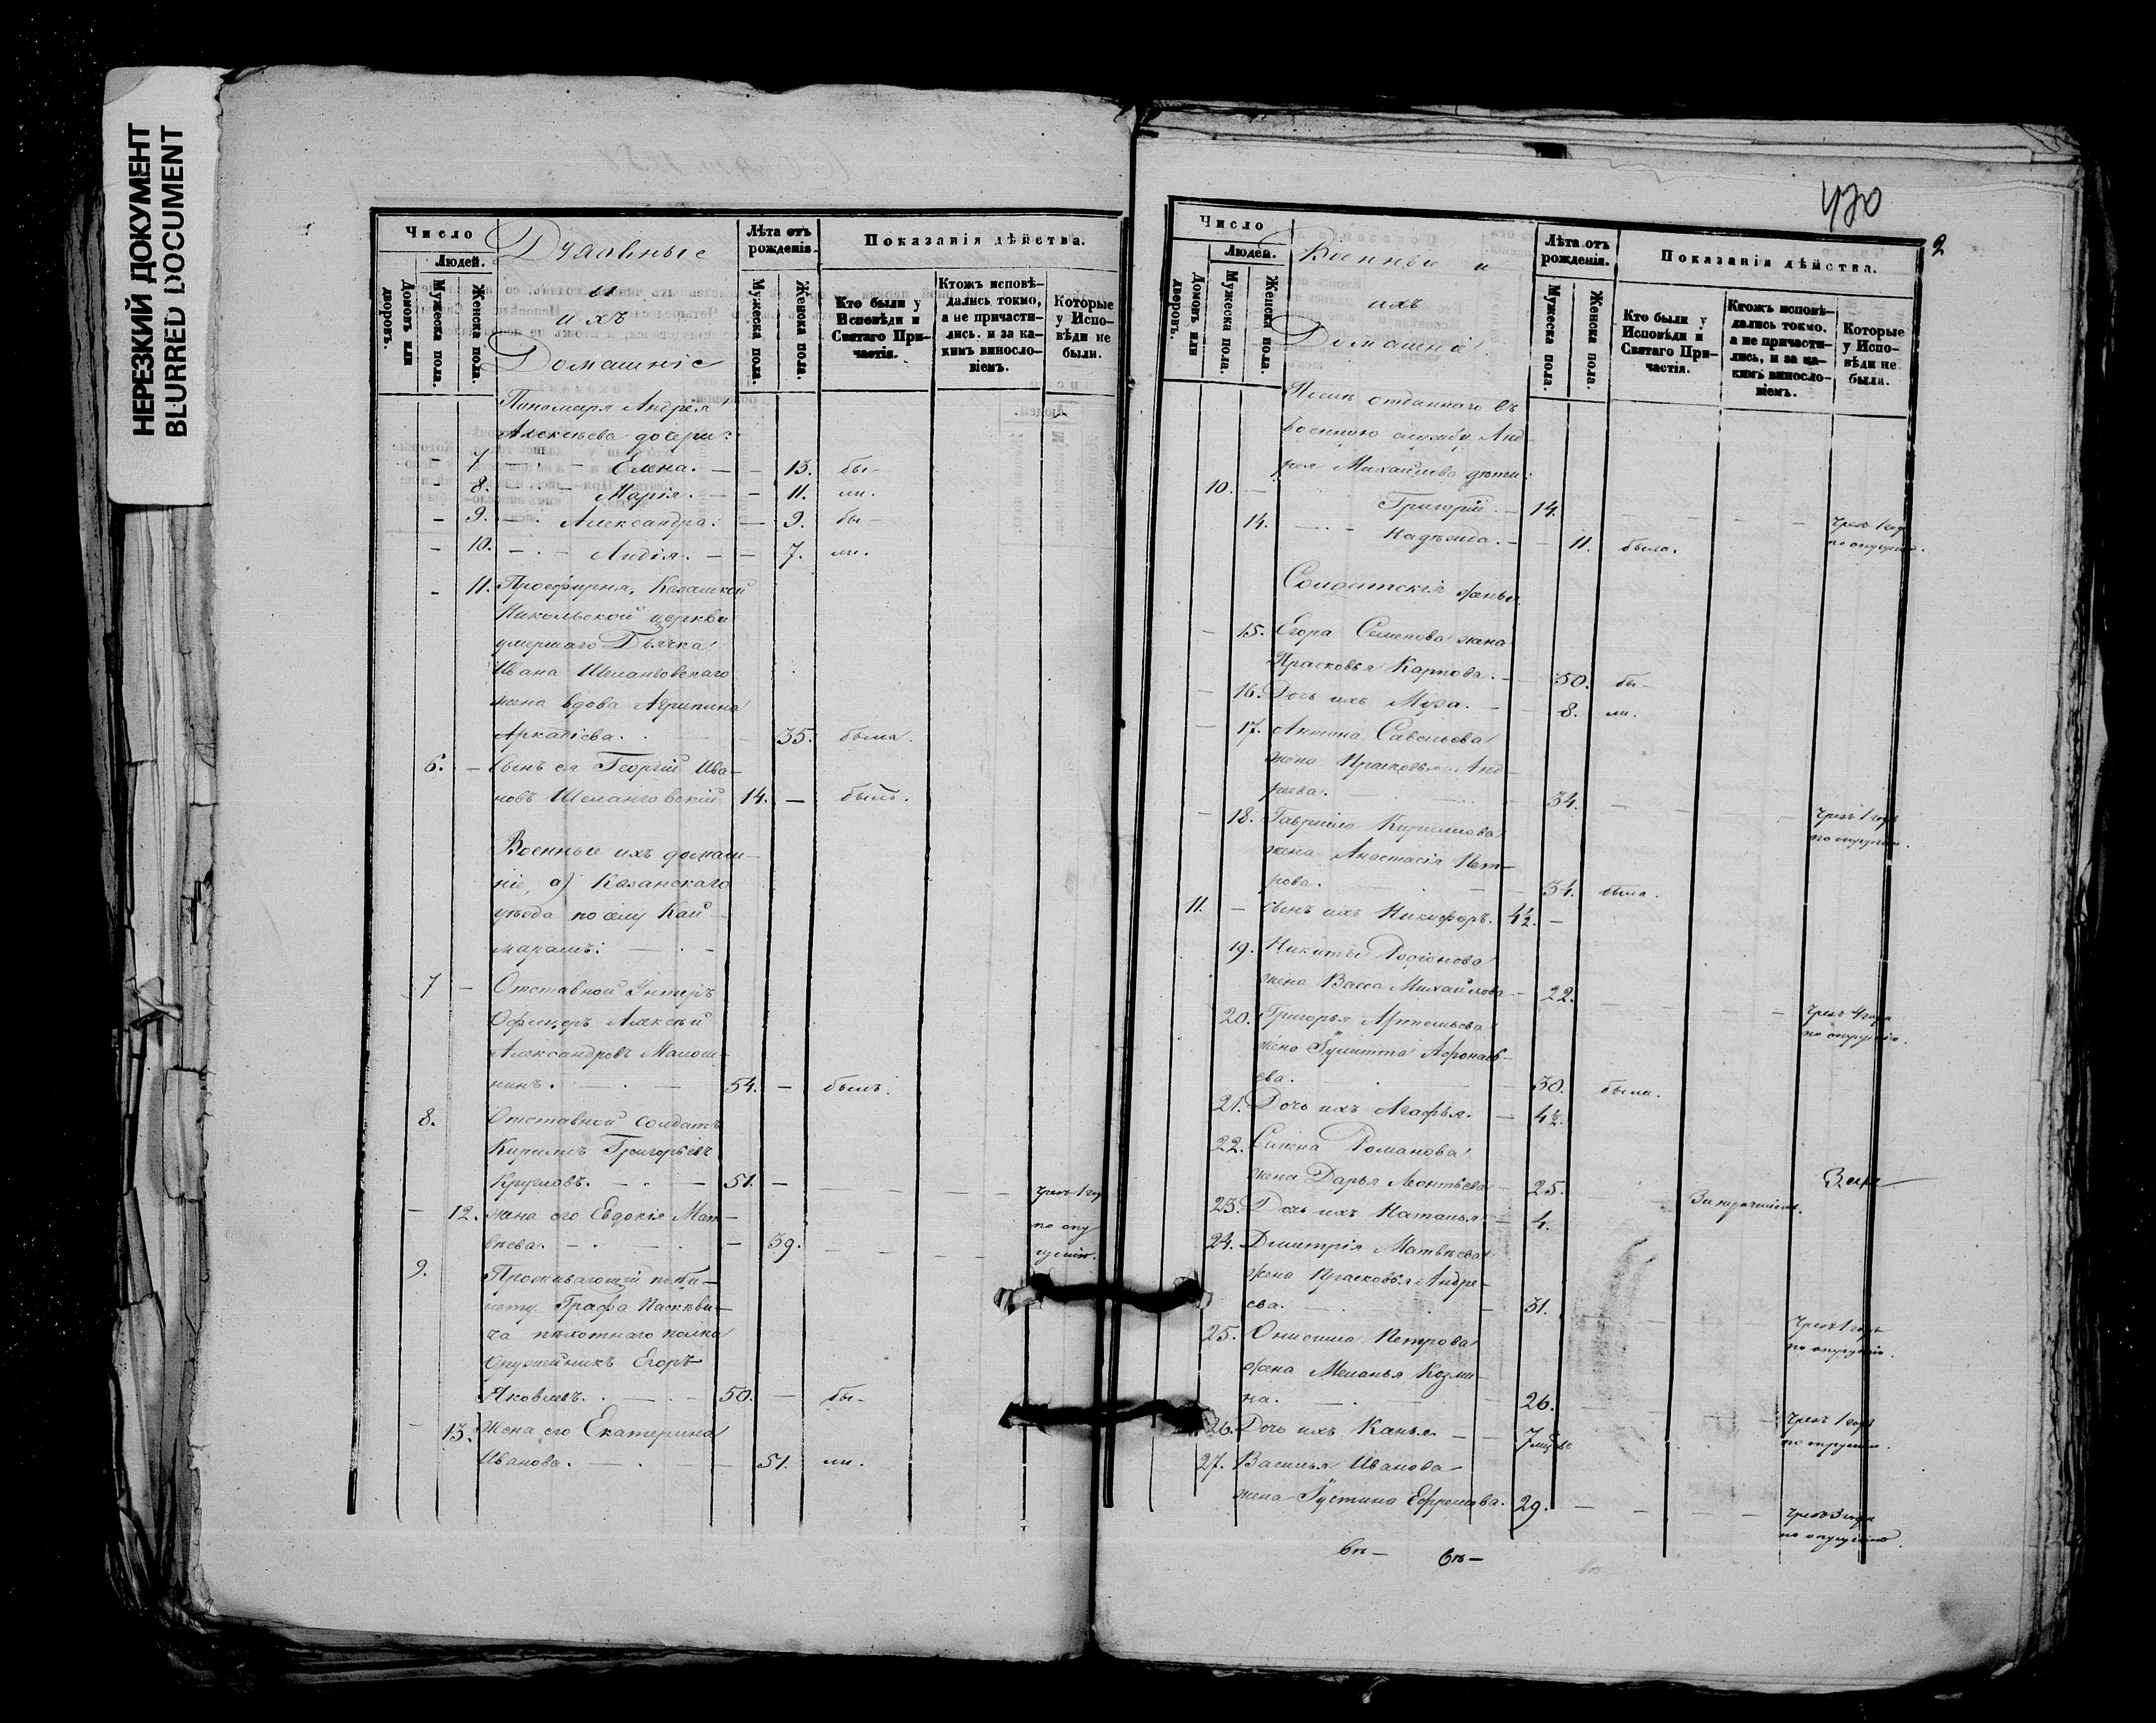 НЕРЕЗКИЙ ДОКУМЕНТ
BLURRED DOCUMENT
Число
Людей.
Домовъ или дворовъ.
Мужеска пола.
Женска пола.
Духовные
и
ихъ
Домашніе
Лѣта отъ рожденія.
Мужеска пола.
Женска пола.
Показанія дѣйства.
Кто были у Исповѣди и Святаго Причастія.
Ктожъ исповѣдались токмо, а не причастились, и за какимъ винословіемъ.
Которые у Исповѣди не были.
Пономаря Андрея
Алексѣева дочери:
- 7 - Елена. - - 13. бы-
- 8. - Марія. - - 11. ли.
- 9. - Александра. - 9. бы-
- 10. - Лидія. - - 7. ли.
- 11. Просфирня, Казанской
Никольской церкви
умершаго Дьячка
Ивана Шеланговскаго
жена вдова Агрипина
Аркадіева. - 35. была.
6. - Сынъ ея Георгій Ива-
новъ Шеланговскій 14. - былъ.
Военные ихъ домаш-
ніе, а) Казанскаго
уѣзда по селу Кай-
марамъ:
7 - Отставной Унтеръ
Офицеръ Алексѣй
Александровъ
54. - былъ.
8. Отставной солдатъ
Кирилъ Григорьевъ
Кругловъ. - 51. - чрезъ 1 годъ
- 12. жена его Евдокія Мат-
вѣева. - 39. по опу
щенію.
9. Проживающій по би-
лету Графа Паскеви-
ча пѣхотнаго полка
Оружейникъ Егоръ
Яковлевъ. - 50. - бы-
- 13. Жена его Екатерина
Иванова. - 51. ли.
430
2
Число
Людей.
Домовъ или дворовъ.
Мужеска пола.
Женска пола.
Военные и
ихъ
Домашніе.
Лѣта отъ рожденія.
Мужеска пола.
Женска пола.
Показанія дѣйства.
Кто были у Исповѣди и Святаго Причастія.
Ктожъ исповѣдались токмо, а не причастились, и за какимъ винословіемъ.
Которые у Исповѣди не были.
отданнаго въ
военную службу Анд-
рея Михайлова дѣти:
10. - Григорій. - 14. чрезъ 1 годъ
14. - Надежда. - 11. была. по опущенію.
Солдатскія жены
- 15. Егора Семенова жена
Прасковья Карпова. - 50. бы-
- 16. Дочь ихъ Муза. - 8. ли.
- 17. Антипа Савельева
жена Прасковья Анд-
реева. - 34. - чрезъ 1 годъ
по опущенію.
- 18. Гаврила Кирилова
жена Анастасія Пет-
рова. - 34. была.
11. - сынъ ихъ Никифоръ. 4½. -
19. Никиты Родіонова
жена Васса Михайлова - 22. чрезъ 4 года
по опущенію.
20. Григорья Артемьева
жена Іулитта Афонась-
ева. - 30. была.
21. Дочь ихъ Агафья. - 4½.
22. Семена Романова
жена Дарья Леонтьева - 25.
23. Дочь ихъ Наталья. - 4.
24. Дмитрія Матвѣева
жена Прасковья Андре-
ева. - 31. чрезъ 1 годъ
по опущенію.
25. Онисима Петрова
жена Меланья Козми-
на. - 26. чрезъ 1 годъ
по опущенію.
26. Дочь ихъ - 7
27. Василья Иванова
жена Іустина Ефремова. 29. - чрезъ 3 года
по опущенію.